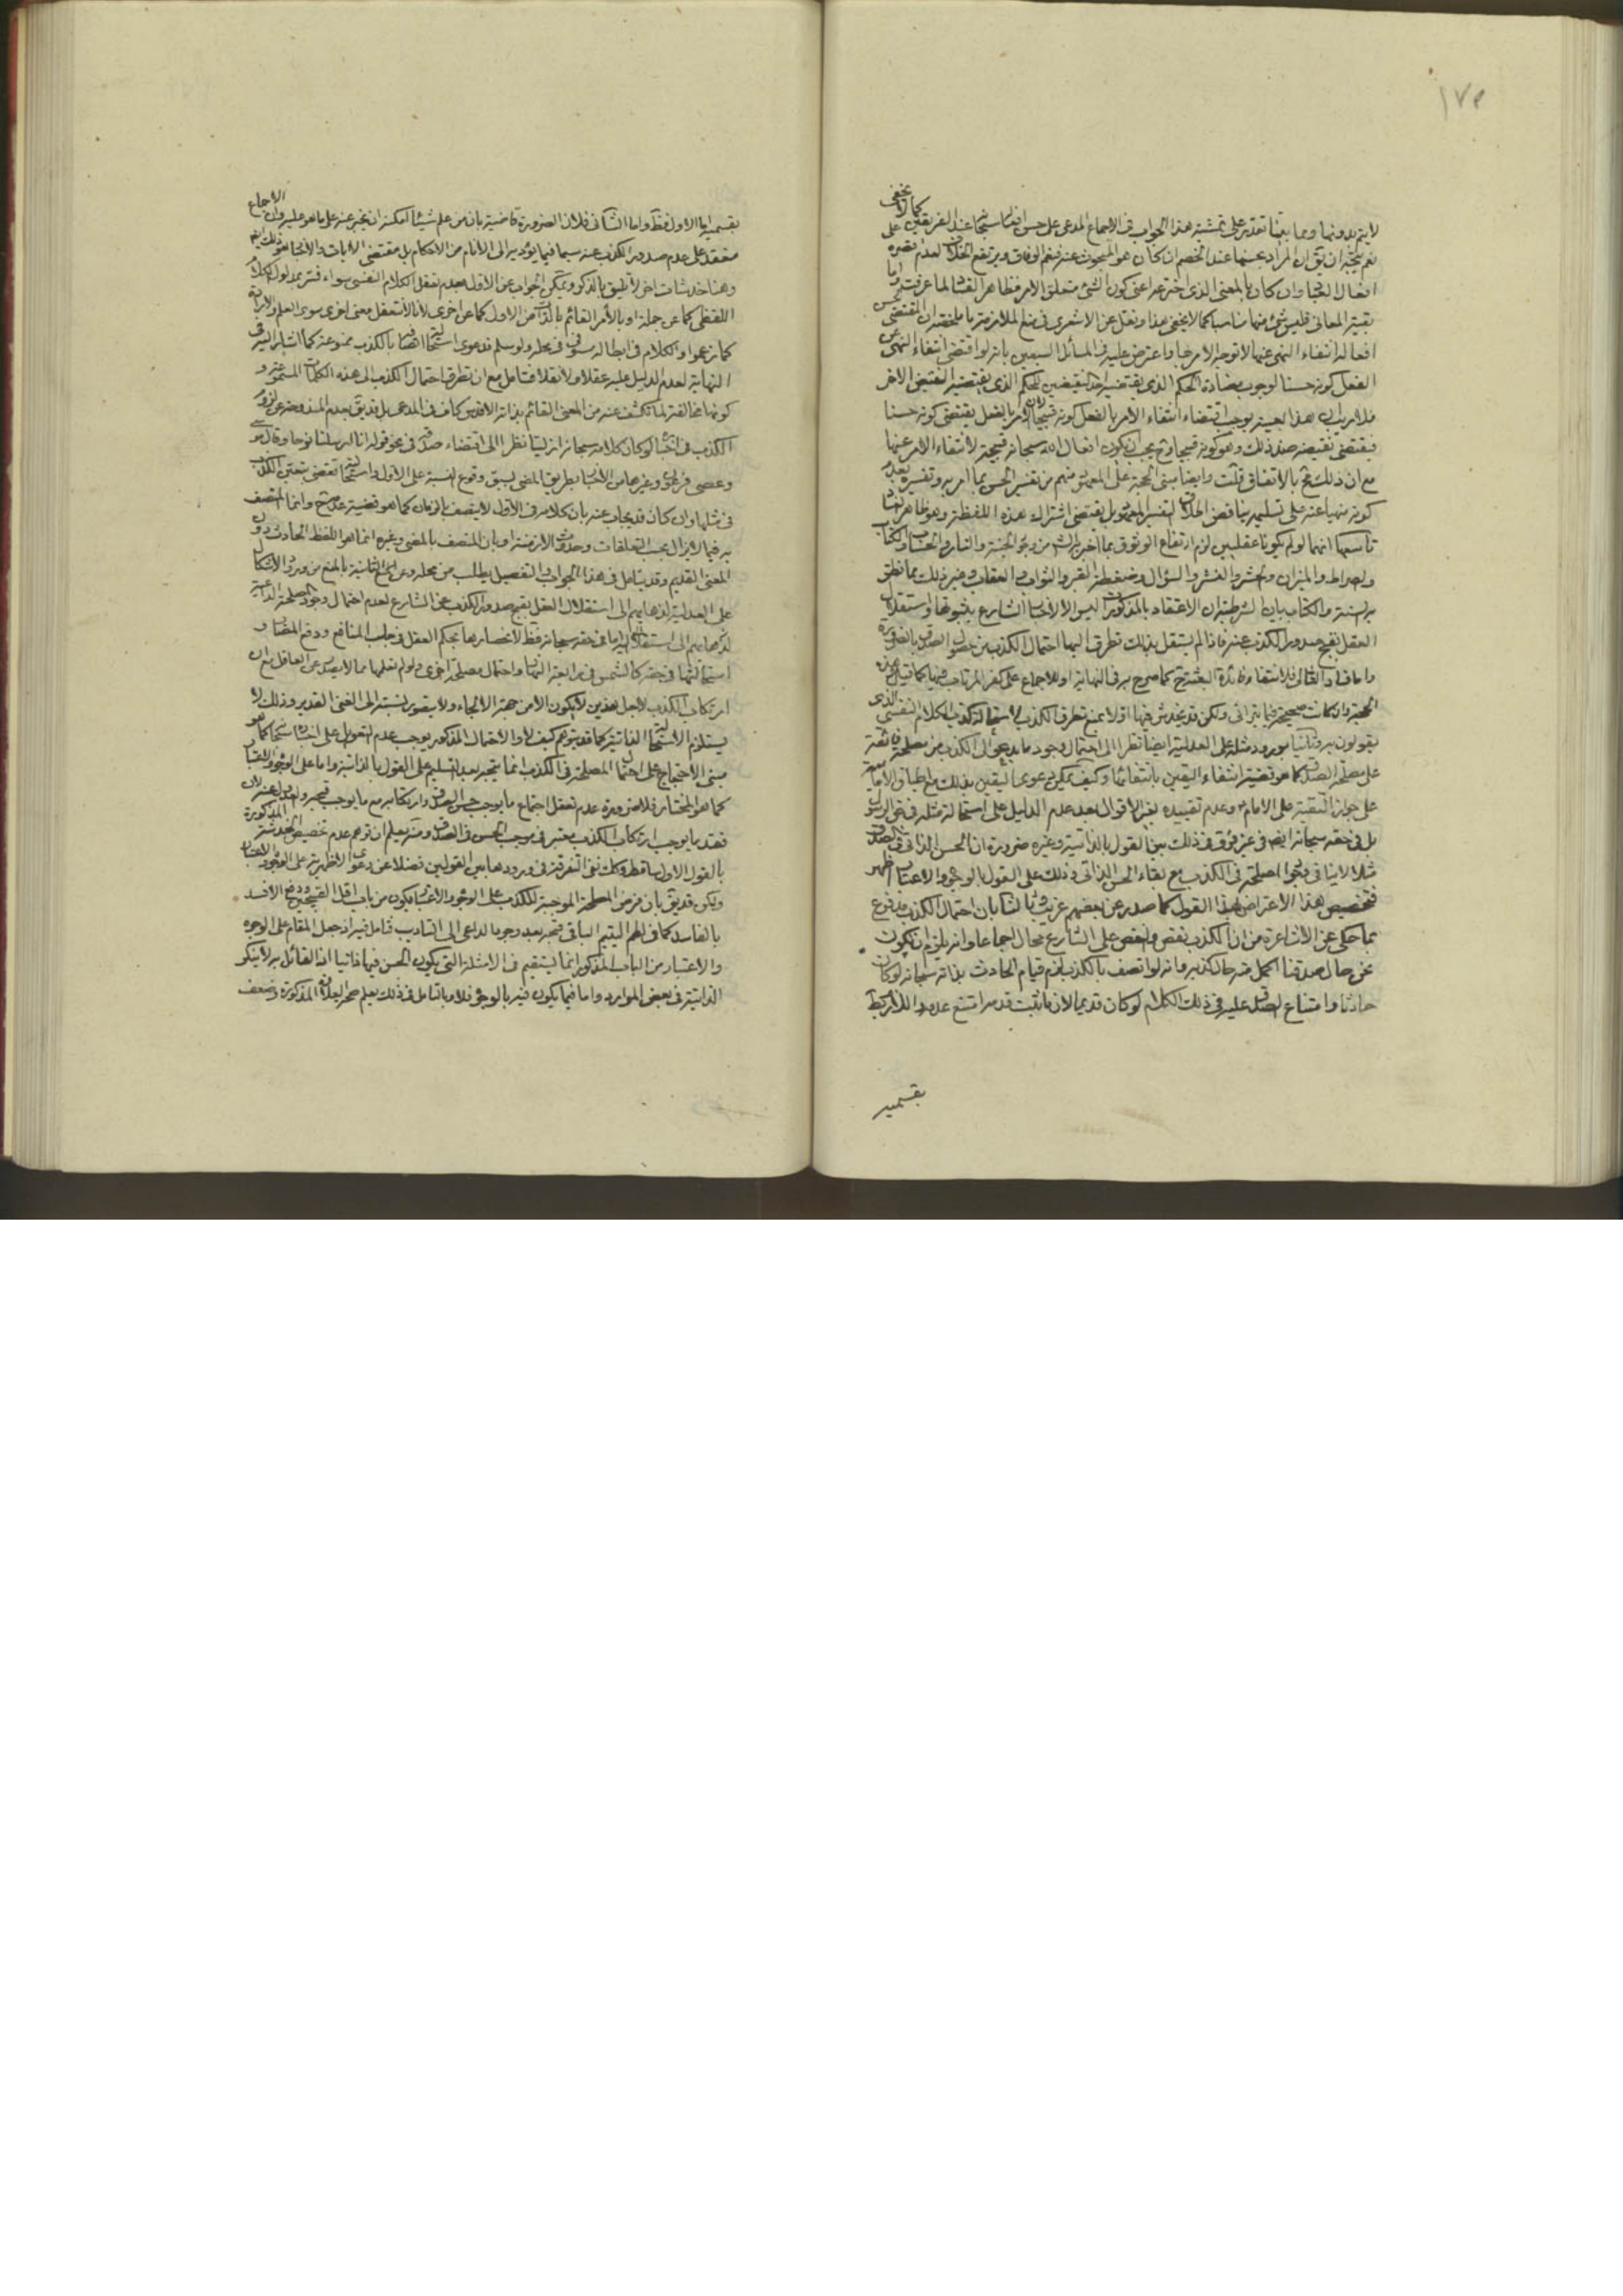 ١٧٥
لا يتم بدونها وعما بيننا تقدير على تمشية هذا الجواب في الاجماع المدعى على حسن افعاله سبحانه عند الفريقين كما لا يخفى
نعم يتجه ان يق ان المراد عنهما عند الخصم ان كان هو المبحوث عنه فنعم الوفاق ويرتفع الخلاف لعدم على
افعال العباد وان كان بالمعنى الذي اخترعه اعني كون الشيء متعلق الامر فظاهر الفساد لما عرفت واما
بقية المعاني فليس شيء منها مناسبا كما لا يخفى هذا ونقل عن الاشعري في منع الملازمة ما ملخصه ان المقتضي لحسن
افعاله انتفاء النهي عنها لا توجه الامر بها واعترض عليه في المسائل السبعين بانه لو اقتضى انتفاء النهي عن
الفعل كونه حسنا لوجوب مضادة الحكم الذي يقتضيه احد النقيضين للحكم الذي يقتضيه النقيض الاخر
فلا ريب ان هذا بعينه يوجب اقتضاء انتفاء الامر بالفعل كونه قبيحا لان الامر بالفعل يقتضي كونه حسنا
فيقتضي نقيضه ضد ذلك وهو كونه قبيحا وح يجب ان يكون افعال الله سبحانه قبيحة لانتفاء الامر عنها
مع ان ذلك مح بالاتفاق قلت وايضا مبنى الحجة على المعروف منهم من تفسير الحسن بما امر به وتفسيره بعدم
كونه منهيا عنه على تسليمه يناقض اطلاق التفسير المعهود بل يقتضي اشتراك هذه اللفظة وهو ظاهر الفساد
تاسعها انهما لو لم يكونا عقليين لزم ارتفاع الوثوق بما اخبر به الشرع من وجود الجنة والنار والحساب والكتاب
والصراط والميزان والحشر والنشر والسؤال وضغطة القبر والثواب والعقاب وغير ذلك مما نطق
به السنة والكتاب بيان الشرطية ان الاعتقاد بالمذكورات ليس الا لاخبار الشارع بثبوتها واستقلال
العقل بقبح صدور الكذب عنه فاذا لم يستقل بذلك تطرق اليها احتمال الكذب من حصول الصدق بالضرورة
واما فساد التالي فلانتفاء فائدة البعثة ح كما صرح به في النهاية او للاجماع على كفر المرتاب فيها كما قيل هذه
الحجة وان كانت صحيحة فيما يتراءى ولكن قد يخدش فيها اولا بمنع تطرق الكذب لاستحالة كذب الكلام النفسي الذي
يقولون به وثانيا بورود مثله على العدلية ايضا نظرا الى احتمال وجود ما يدعو الى الكذب من مصلحة فائقة
على مصلحة الصدق كما هو قضية انتفاء اليقين بانتفائها وكيف يمكن دعوى اليقين بذلك مع اطباق الامامية
على جواز التقية على الامام وعدم تقييده ببعض الاقوال بعد عدم الدليل على استحالة مثله في حق الرسول
بل في حقه سبحانه ايضا من غير فرق في ذلك بين القول بالذاتية وغيره ضرورة ان الحسن الذاتي في الصدق
مثلا لا ينافي وجود المصلحة في الكذب مع بقاء الحسن الذاتي وذلك على القول بالوجوه والاعتبار اظهر
فتخصيص هذا الاعتراض بهذا القول كما صدر عن بعضهم غريب وثالثا بان احتمال الكذب مدفوع
بما حكي عن الاشاعرة من ان الكذب نقص والنقص على الشارع محال اجماعا وانه يلزم ان يكون
نحن حال صدقنا اكمل منه حال كذبه وانه لو اتصف بالكذب لزم قيام الحادث بذاته سبحانه لو كان
حادثا وامتناع الصدق عليه في ذلك الكلام لو كان قديما لان ما ثبت قدمه امتنع عدمه واللازم بط
بقسميه
بقسميه اما الاول فظ واما الثاني فلان الضرورة قاضية بان من علم شيئا امكنه ان يخبر عنه على ما هو عليه وان الاجماع
منعقد على عدم صدور الكذب عنه سيما فيما يؤديه الى الانام من الاحكام بل مقتضى الايات والاخبار هو ذلك ايضا
وهنا خدشات اخر لا تليق بالذكر ويمكن الجواب عن الاول بعدم تعقل الكلام النفسي سواء فسر بمدلول الكلام
اللفظي كما عن جملة او بالامر القائم بالذات من الاول كما عن اخرى لانا لا نتعقل معنى اخر سوى العلم والارادة
كما زعموا والكلام في ابطاله مستوفى في محله ولو سلم فدعوى استحالة اتصافه بالكذب ممنوعة كما اشار اليه في
النهاية لعدم الدليل عليه عقلا ولا نقلا فتامل مع ان تطرق احتمال الكذب الى هذه الكلمات المسموعة و
كونها مخالفة لما تكشف عنه من المعنى القائم بذاته الاقدس كاف في المدعى بل قد يق بعدم المندوحة عن لزوم
الكذب في اخباره لو كان كلامه سبحانه ازليا نظرا الى اقتضاء صدقه في نحو قوله انا ارسلنا نوحا وقال موسى
وعصى فرعون وغيرها من الاخبار بطريق المضي لسبق وقوع النسبة على الاول واستحالتها تقضي بتعين الكذب
في مثلها وان كان قد يجاب عنه بان كلامه في الازل لا يتصف بالزمان كما هو قضية عدمه ح وانما المتصف
به فيما لا يزال بحسب التعلقات وحدوث الازمنة او بان المتصف بالمضي وغيره انما هو اللفظ الحادث دون
المعنى القديم وقد يتامل في هذا الجواب والتفصيل يطلب من محله وعن الثانية بالمنع من ورود الاشكال
على العدلية لذهابهم الى استقلال العقل بقبح صدور الكذب عن الشارع لعدم احتمال وجود المصلحة الداعية
اما في حقه سبحانه فظ لانحصارها بحكم العقل في جلب المنافع ودفع المضار و
استحالتهما في حقه كالشمس في رابعة النهار واحتمال مصلحة اخرى ولو لم نعلمها مما لا يصدر عن العاقل مع ان
ارتكاب الكذب لاجل هذين لا يكون الا من جهة الالجاء ولا يتصور نسبته الى الغني القدير وذلك لا
يستلزم الاستحالة الذاتية كما قد يتوهم كيف لا والاحتمال المذكور يوجب عدم التعويل على اخباره سبحانه كما هو
مبنى الاحتجاج على ان احتمال المصلحة في الكذب انما يتجه بعد التسليم على القول بالذاتية واما على الوجوه والاعتبار
كما هو المختار فلا ضرورة عدم تعقل اجتماع ما يوجب حسن الصدق وارتكابه مع ما يوجب قبحه
فقد ما يوجب ارتكاب الكذب معتبر في موجب الحسن في الصدق ومنه يعلم ان توهم عدم تخصيص الخدشة المذكورة
بالقول الاول ساقط وكذا نفي التفرقة في ورودها بين القولين فضلا عن دعوى الاظهرية على الوجوه والاعتبار
ولكن قد يق بان فرض المصلحة الموجبة للكذب على الوجوه والاعتبار يكون من باب اقل القبيحين ودفع الافسد
بالفاسد كما في لطم اليتيم الباقي قبحه بعد وجود الداعي الى التاديب فتامل فيه اذ جعل المقام على الوجوه
والاعتبار من الباب المذكور انما يستقيم في الامثلة التي يكون الحسن فيها ذاتيا اذ القائل به لا ينكر
الذاتية في بعض الموارد واما فيما يكون فيه بالوجوه فلا وبالتامل في ذلك يعلم صحة العلاوة المذكورة وضعف